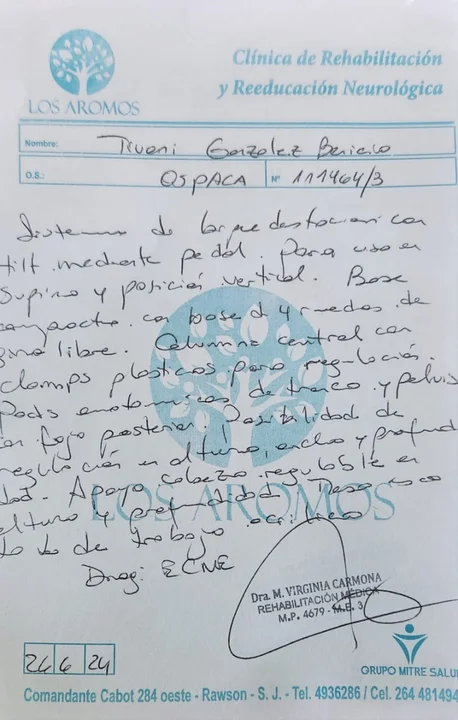 LOS AROMOS
Clínica de Rehabilitación
y Reeducación Neurológica
Nombre: Gonzalez
O.S.: OSPACA Nº 111464/3
Sistema de bipedestacion con
tilt mediante pedal. Para uso en
supino y posición vertical. Base
con base d 4 ruedas de
giro libre. Columna central con
clamps plasticos para regulación.
Pads anatomicos de tronco y pelvis
con faja posterior. Posibilidad de
regulación en altura, ancho y profundi
dad. Apoya cabeza regulable en
altura y profundidad.
de trabajo acrilico
Diag: ECNE
LOS AROMOS
Dra. M. VIRGINIA CARMONA
REHABILITACIÓN MÉDICA
M.P. 4679 - M.E. 3
26 6 24
GRUPO MITRE SALU
Comandante Cabot 284 oeste - Rawson - S. J. - Tel. 4936286 / Cel. 264 481494